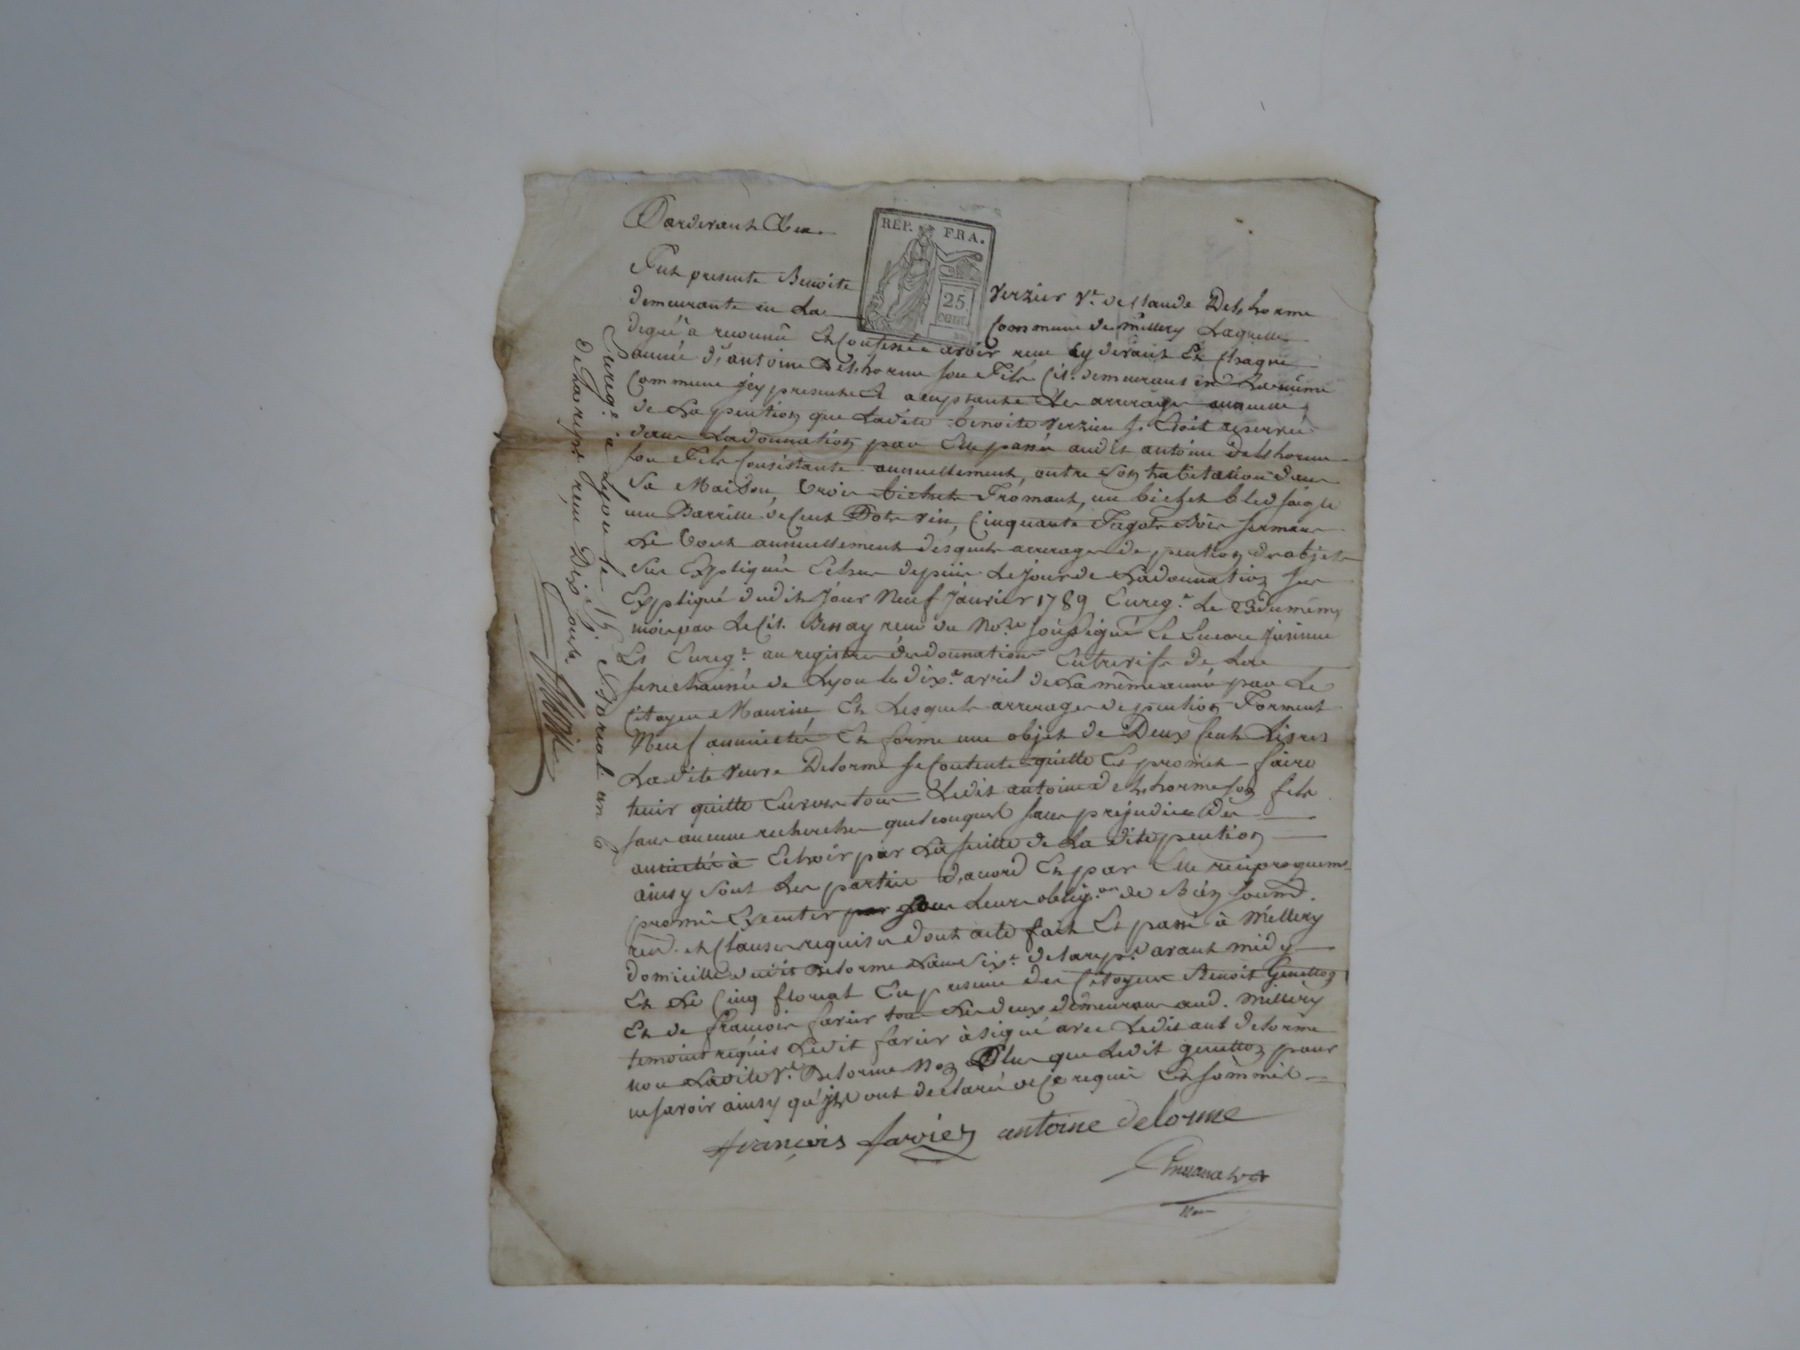 Pardevant Nen.
REP. FRA.
25
CENT.
Fut presente Benoite Verzier Ve. de Claude Delhorme
demeurante en La Commune de millery Laquelle
degré à reconnû Et Confessé avoir reçu cy devant Et Chaque
année d'antoine Delhorme son Fils Cit. demeurant en La même
Commune jcy present Et acceptante Les arrerages annuels
de La pention que Ladite benoite Verzier s'Etoit reservée
dans Ladonnation par Elle passée audit antoine Delhorme
son Fils Consistante annuellement, outre son habitation dans
Sa Maison, trois bichets Fromant, un bichet bled seigle
une Barrille de Cent Pots vin, Cinquante Fagots Bois serment
Le tout annuellement desquels arrerages de pention et objets
sus Expliqués Echus depuis Le jour de Ladonnation sus
Expliqué dudit jour Neuf Janvier 1789 Enreg.e Le 23 du même
mois par Le Cit. Benay reçu du No.re soussigné Et Encore jnsinué
Et Enreg.e au registre des donnations Entrevifs de La
senechaussée de Lyon le dix.e avril de La même année par Le
Citoyen Maurin Et Lesquels arrerages de pention Forment
Neuf annuités Et forme un objet de Deux Cent Livres
Ladite veuve Delorme se Contente quitte Et promet faire
tenir quitte Envers tous Ledit antoine delhorme son fils
sans aucune recherche quelconques sans préjudice des
annuités à Echoir par La suitte de La dite pention
ainsy sont Les parties d'acord Et par Elle reciproquem.
promis Executer par sous Leurs oblig.on de Bien soumd.
ren. et Clauses requises dont acte fait Et passé à Millery
domicille dudit Delorme L'an Six.e de larep.e avant midy
Et Le Cinq floreal En presence des Citoyens Benoit Genetton
Et de françois favier tous Les deux demeurans aud. Millery
temoins requis Ledit favier à signé avec Ledit ant. delorme
non Ladite Ve. Delorme Non Plus que Ledit genetton pour
ne savoir ainsy qu'jls ont declaré de Ce requis Et sommés
françois favier antoine delorme
Enreg.e à Lyon le 15. floreal an 6
de La rep.e reçu Dix sous.